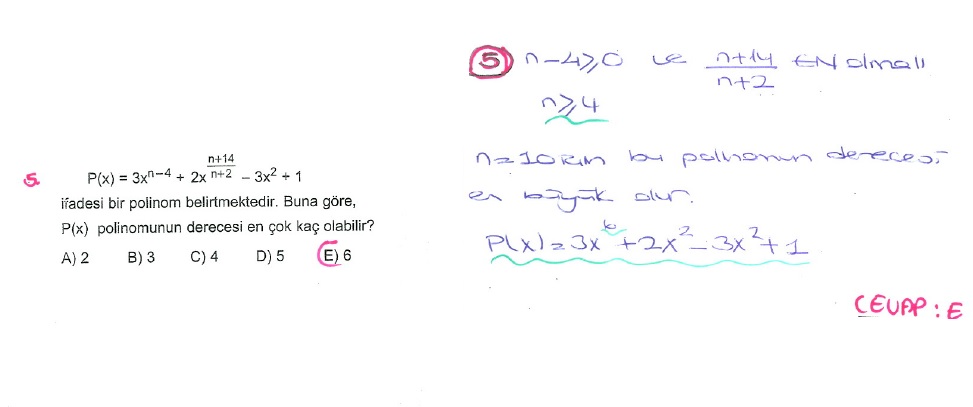 5.
P(x) = 3xⁿ⁻⁴ + 2x^((n+14)/(n+2)) – 3x² + 1
ifadesi bir polinom belirtmektedir. Buna göre,
P(x) polinomunun derecesi en çok kaç olabilir?
A) 2 B) 3 C) 4 D) 5 E) 6
5) n-4≥0 ve (n+14)/(n+2) ∈N olmalı
n≥4
n=10 için bu polinomun derecesi
en büyük olur.
P(x)=3x⁶+2x²-3x²+1
CEVAP : E